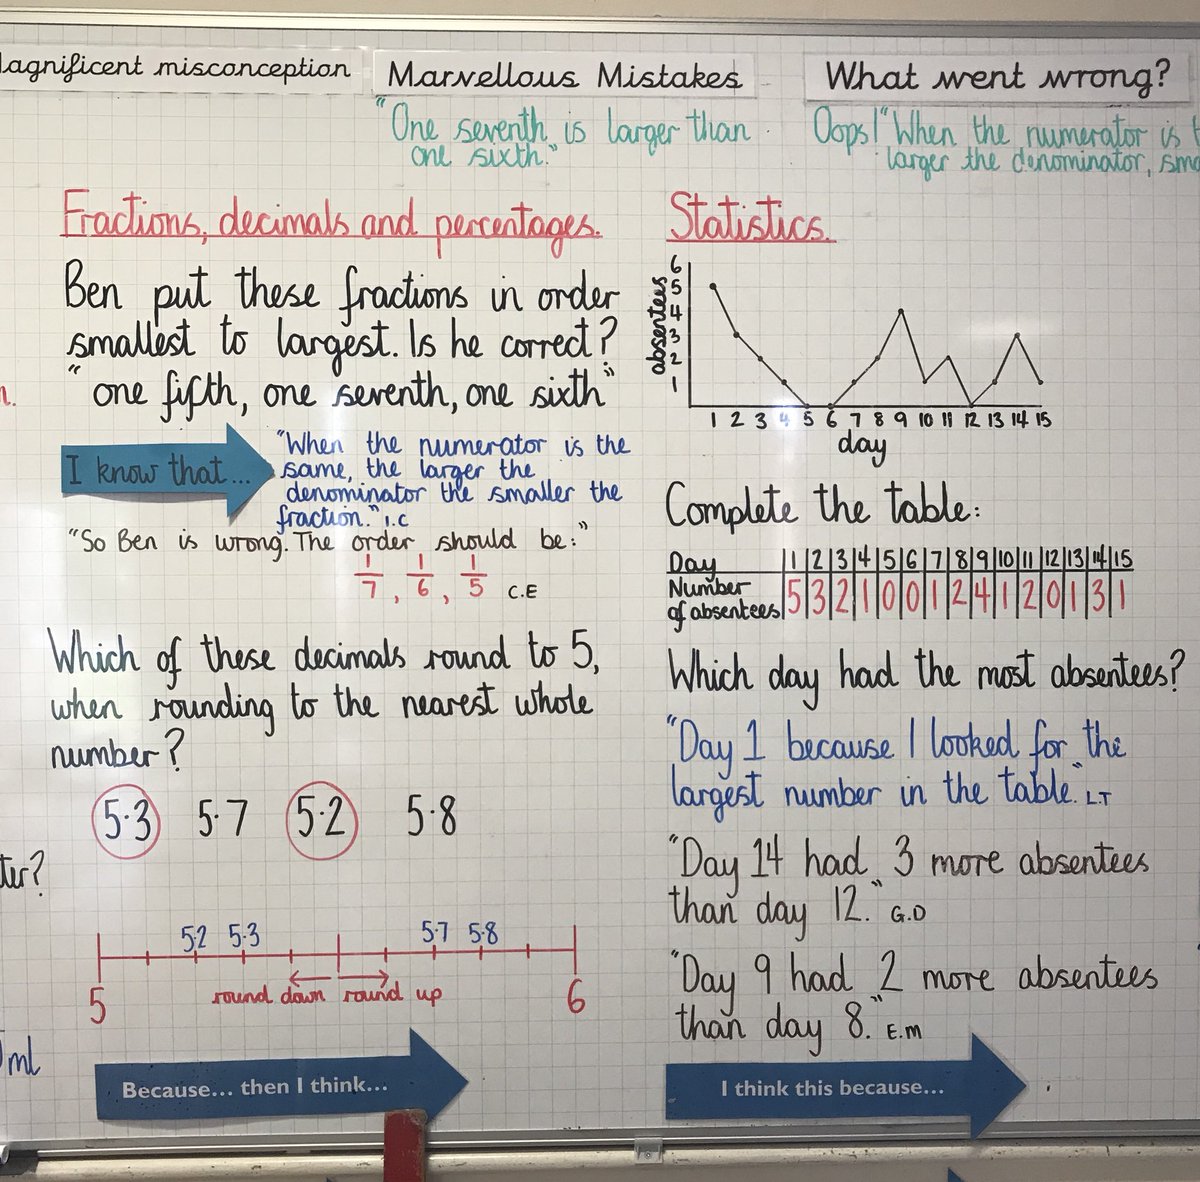 Magnificent misconception
Marvellous Mistakes
What went wrong?
"One seventh is larger than
one sixth."
Oops! "When the numerator is
larger the denominator,
Fractions, decimals and percentages.
Ben put these fractions in order
smallest to largest. Is he correct?
"one fifth, one seventh, one sixth"
I know that...
"When the numerator is the
same, the larger the
denominator the smaller the
fraction." I.C
"So Ben is wrong. The order should be:"
1/7, 1/6, 1/5 C.E
Which of these decimals round to 5,
when rounding to the nearest whole
number?
5.3 5.7 5.2 5.8
5.2 5.3 5.7 5.8
round down round up
5 6
Because... then I think...
ml
Statistics.
absentees
6
5
4
3
2
1
1 2 3 4 5 6 7 8 9 10 11 12 13 14 15
day
Complete the table:
Day 1 2 3 4 5 6 7 8 9 10 11 12 13 14 15
Number
of absentees 5 3 2 1 0 0 1 2 4 1 2 0 1 3 1
Which day had the most absentees?
"Day 1 because I looked for the
largest number in the table." L.T
"Day 14 had 3 more absentees
than day 12." G.D
"Day 9 had 2 more absentees
than day 8." E.M
I think this because...